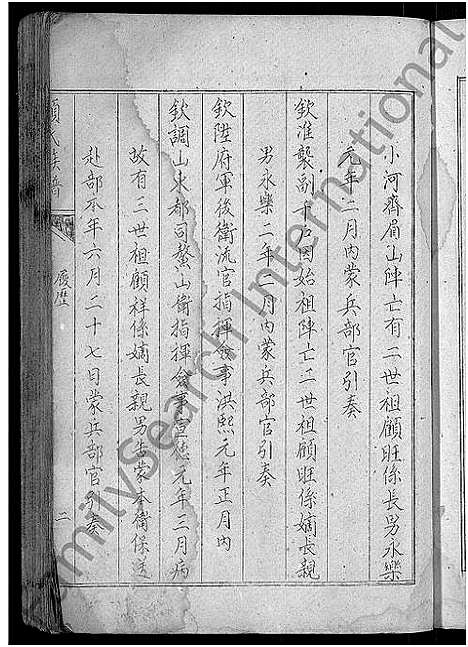 小河齊眉山陣亡有二世祖顧旺係長男永樂
元年二月內蒙兵部官引奏
欽准襲副千戶因始祖陣亡二世祖顧旺係嫡長親
男永樂二年二月內蒙兵部官引奏
欽陞府軍後衛流官指揮僉事洪熙元年正月內
欽調山東都司鰲山衛指揮僉事宣德元年三月病
故有三世祖顧祥係嫡長親男告蒙本衛保送
赴部本年六月二十七日蒙兵部官引奏
顧氏族譜
履歷
二
FamilySearch International